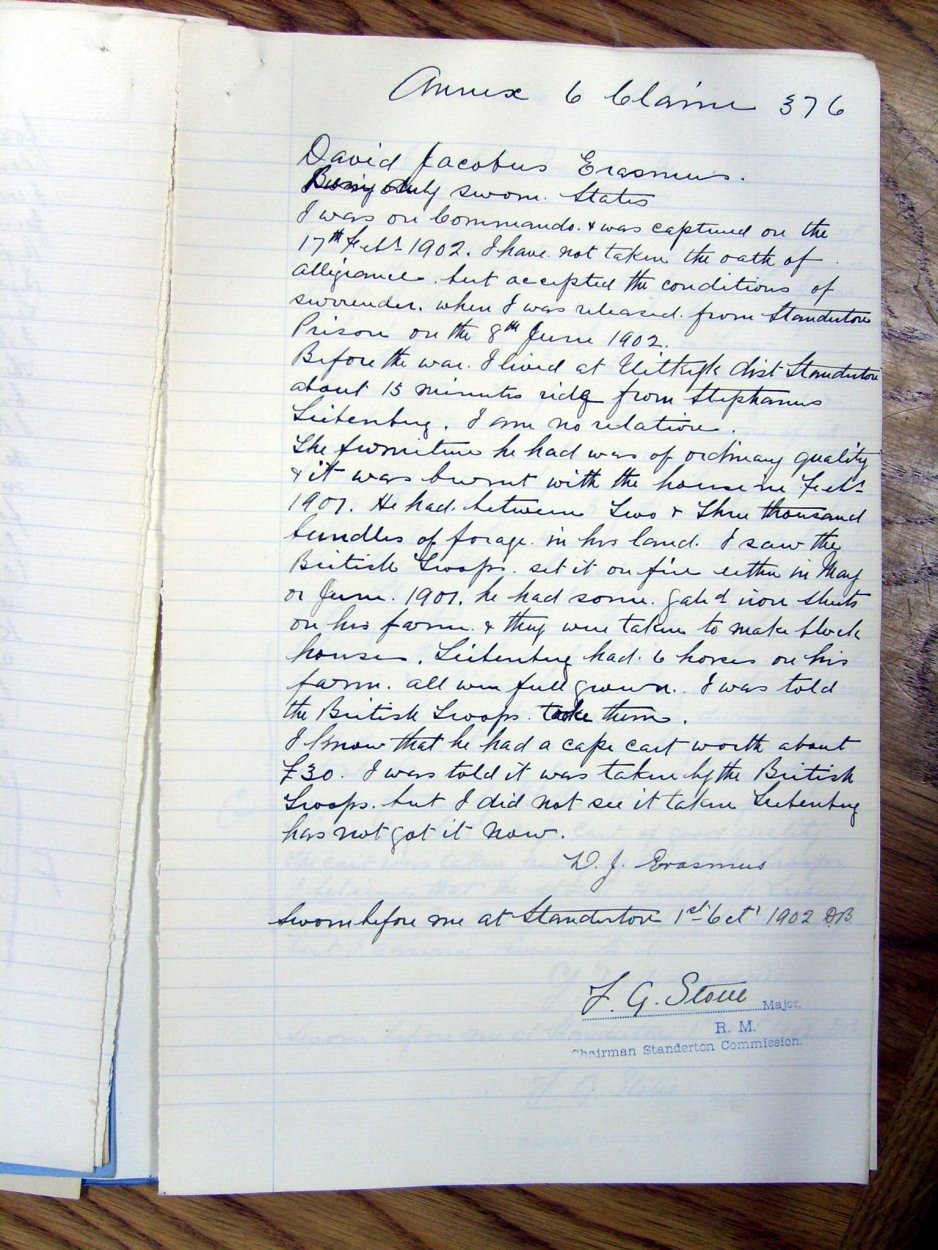 Annex 6 Claim 376
David Jacobus Erasmus.
Being duly sworn. States
I was on Commando. & was captured on the
17th Feb. 1902. I have not taken the oath of
allegiance. but accepted the conditions of
surrender. when I was released. from Standerton
Prison on the 8th June 1902.
Before the war. I lived at dist Standerton
about 15 minutes ride from Stephanus
Liebenberg. I am no relation.
The furniture he had was of ordinary quality
& it was burnt with the house in Feb.
1901. He had between Two & Three thousand
bundles of forage. in his land. I saw the
British Troops. set it on fire either in May
or June. 1901. he had some. galvd iron sheets
on his farm. & they were taken to make block
houses. Liebenberg had 6 horses on his
farm. all were full grown. I was told
the British Troops. took them.
I know that he had a cape cart worth about
£30. I was told it was taken by the British
Troops. but I did not see it taken Liebenberg
has not got it now.
D. J. Erasmus
Sworn before me at Standerton 1st Oct 1902 DB.
F. G. Stone Major.
R. M.
Chairman Standerton Commission.